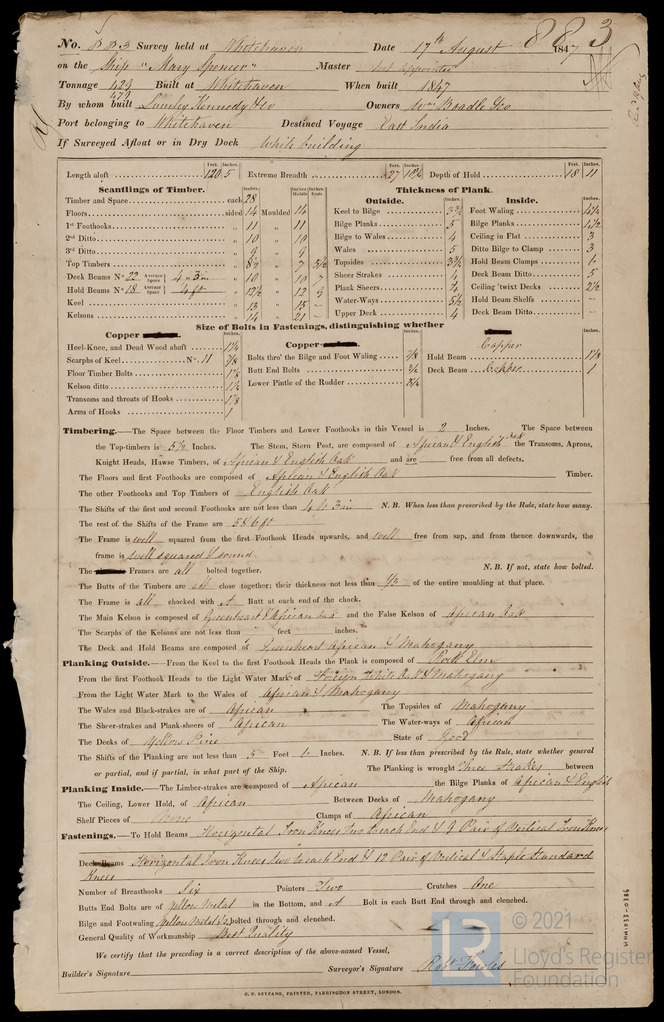 No. 883 Survey held at Whitehaven Date 17th August 1847
883
on the Ship "Mary Spencer" Master not appointed
Tonnage 429 Built at Whitehaven When built 1847
479
By whom built Lumley Kennedy & Co Owners Wm Beadle & Co
Port belonging to Whitehaven Destined Voyage East India
If Surveyed Afloat or in Dry Dock While building
Feet. Inches. Feet. Inches. Feet. Inches.
Length aloft 120 5 Extreme Breadth 27 Depth of Hold 18 11
Scantlings of Timber.
Timber and Space each 28
Floors sided 14 Moulded 14
1st Foothooks " 11 " 11
2nd Ditto " 10 " 10
3rd Ditto " 9 " 9
Top Timbers " 8½ " 7 5½
Deck Beams No. 22 Average Space 4 3in " 10 " 10 7
Hold Beams No. 18 Average Space 4 ft " 12½ " 12 9
Keel " 13 " 15 –
Kelsons " 14 " 21 –
Thickness of Plank.
Outside.
Keel to Bilge 3½
Bilge Planks 5
Bilge to Wales 4
Wales 5
Topsides
Sheer Strakes 4
Plank Sheers
Water-Ways 5½
Upper Deck 4
Inside.
Foot Waling
Bilge Planks 4½
Ceiling in Flat 3
Ditto Bilge to Clamp 3
Hold Beam Clamps
Deck Beam Ditto 5
Ceiling 'twixt Decks 2½
Hold Beam Shelfs –
Deck Beam Ditto –
Size of Bolts in Fastenings, distinguishing whether
Copper
Heel-Knee, and Dead Wood abaft 1¼
Scarphs of Keel No. 11 7/8
Floor Timber Bolts 1⅛
Kelson ditto 1¼
Transoms and throats of Hooks 1⅛
Arms of Hooks 1
Copper
Bolts thro' the Bilge and Foot Waling 7/8
Butt End Bolts ¾
Lower Pintle of the Rudder 3¼
Copper
Hold Beam 1⅛
Deck Beam Copper 1
Timbering.—The Space between the Floor Timbers and Lower Foothooks in this Vessel is 2 Inches. The Space between
the Top-timbers is 5½ Inches. The Stem, Stern Post, are composed of African & English Oak the Transoms, Aprons,
Knight Heads, Hawse Timbers, of African & English Oak and are free from all defects.
The Floors and first Foothooks are composed of African & English Oak Timber.
The other Foothooks and Top Timbers of English Oak
The Shifts of the first and second Foothooks are not less than 4 ft 3 in N. B. When less than prescribed by the Rule, state how many.
The rest of the Shifts of the Frame are 5 & 6 ft
The Frame is well squared from the first Foothook Heads upwards, and well free from sap, and from thence downwards, the
frame is well squared & sound
The Frames are all bolted together. N. B. If not, state how bolted.
The Butts of the Timbers are all close together; their thickness not less than 1/3 of the entire moulding at that place.
The Frame is all chocked with A Butt at each end of the chock.
The Main Kelson is composed of Greenheart & African Oak and the False Kelson of African Oak
The Scarphs of the Kelsons are not less than feet inches.
The Deck and Hold Beams are composed of Greenheart African & Mahogany
Planking Outside.—From the Keel to the first Foothook Heads the Plank is composed of Rock Elm
From the first Foothook Heads to the Light Water Mark of Foreign White Oak & Mahogany
From the Light Water Mark to the Wales of African & Mahogany
The Wales and Black-strakes are of African The Topsides of Mahogany
The Sheer-strakes and Plank-sheers of African The Water-ways of African
The Decks of Yellow Pine State of Good
The Shifts of the Planking are not less than 5 Feet Inches. N. B. If less than prescribed by the Rule, state whether general
or partial, and if partial, in what part of the Ship. The Planking is wrought three Strakes between
Planking Inside.—The Limber-strakes are composed of African the Bilge Planks of African & English
The Ceiling, Lower Hold, of African Between Decks of Mahogany
Shelf Pieces of None Clamps of African
Fastenings.—To Hold Beams Horizontal Iron Knees two to each End & 9 Pair of Vertical Iron Knees
Deck Beams Horizontal Iron Knees two to each End & 12 Pair of Vertical & Staple Standard
Knees
Number of Breasthooks Six Pointers Two Crutches One
Butts End Bolts are of Yellow Metal in the Bottom, and A Bolt in each Butt End through and clenched.
Bilge and Footwaling Yellow Metal bolted through and clenched.
General Quality of Workmanship Best Quality
We certify that the preceding is a correct description of the above-named Vessel,
Builder's Signature Surveyor's Signature Robt Fowles
C. F. SEYFANG, PRINTER, FARRINGDON STREET, LONDON.
© 2021
Lloyd's Register
Foundation